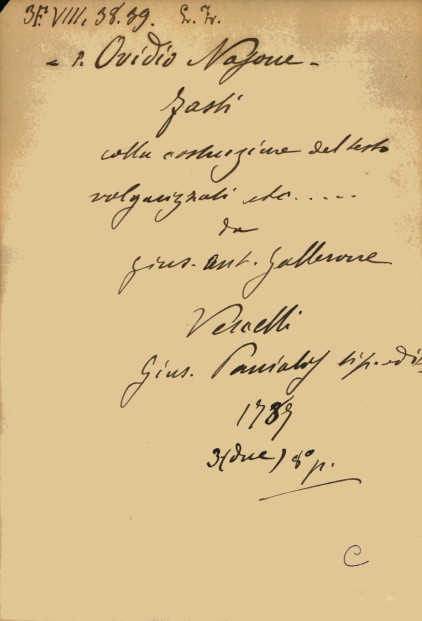 3F. VIII. 38.39. L. L.
- P. Ovidio Nasone -
Fasti
colla costruzione del testo
volganizzati etc.....
da
Gius. Ant. Gallerone
Vercelli
Gius. Panialis tip. edi
1789
3 (due) 8° p.
C